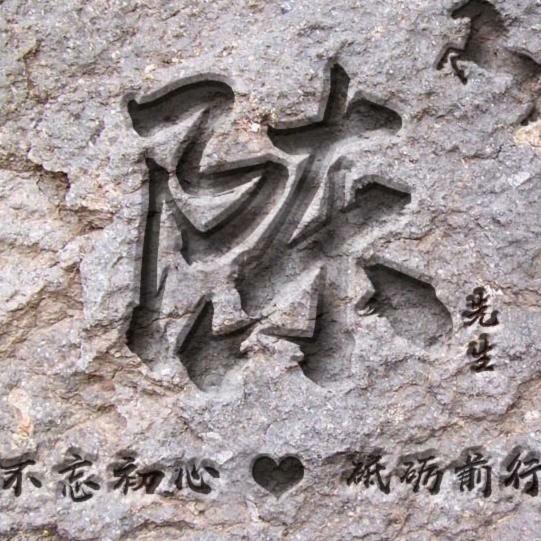 陈
先生
不忘初心 砥砺前行